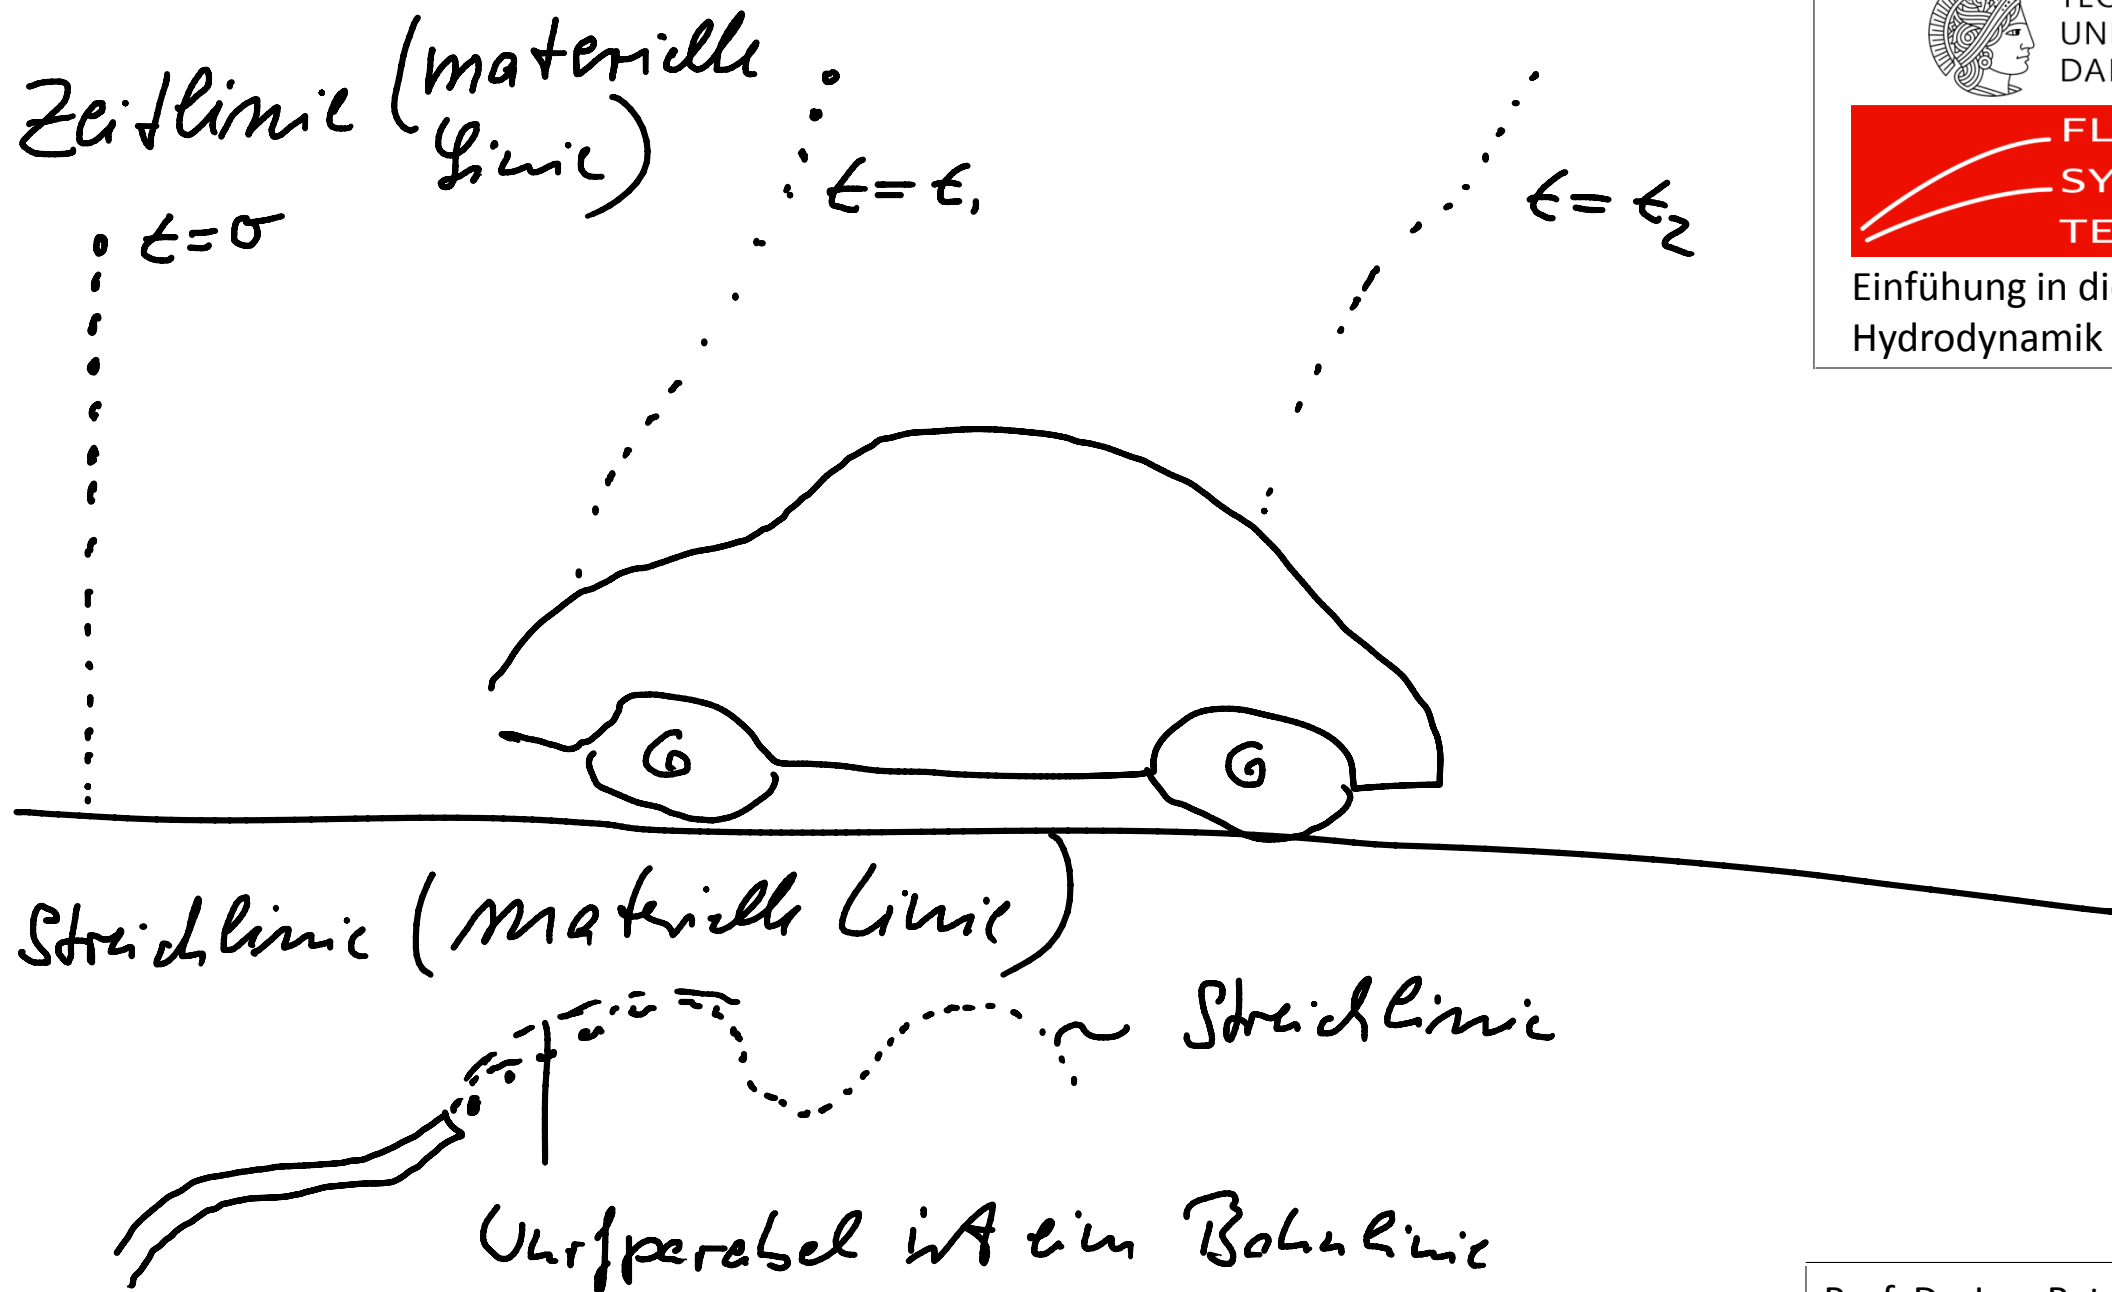 Zeitlinie (materielle
Linie)
t=0
t=t1
t=t2
TEC
UNI
DAR
FL
SY
TE
Einfühung in di
Hydrodynamik
Streichlinie (materielle Linie)
Streichlinie
Wurfparabel ist ein Bahnlinie